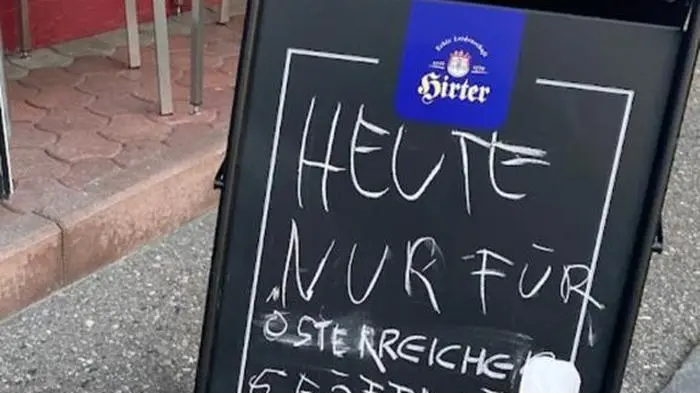 Hirter
HEUTE
NUR FÜR
ÖSTERREICHER